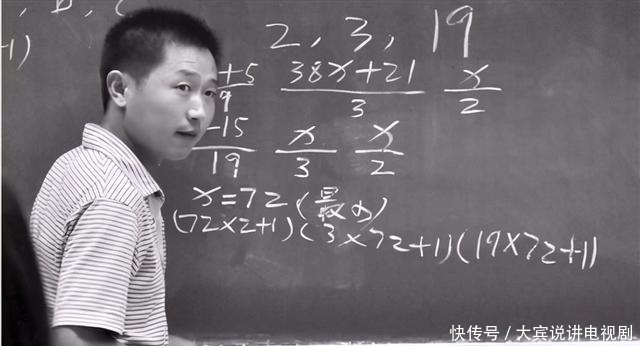 2, 3, 19
+1)
+5/19 (38x+21)/3 x/2
-15/19 x/3 x/2
x=72 (最小)
(72×2+1)(3×72+1)(19×72+1)
快传号/大宾说讲电视剧